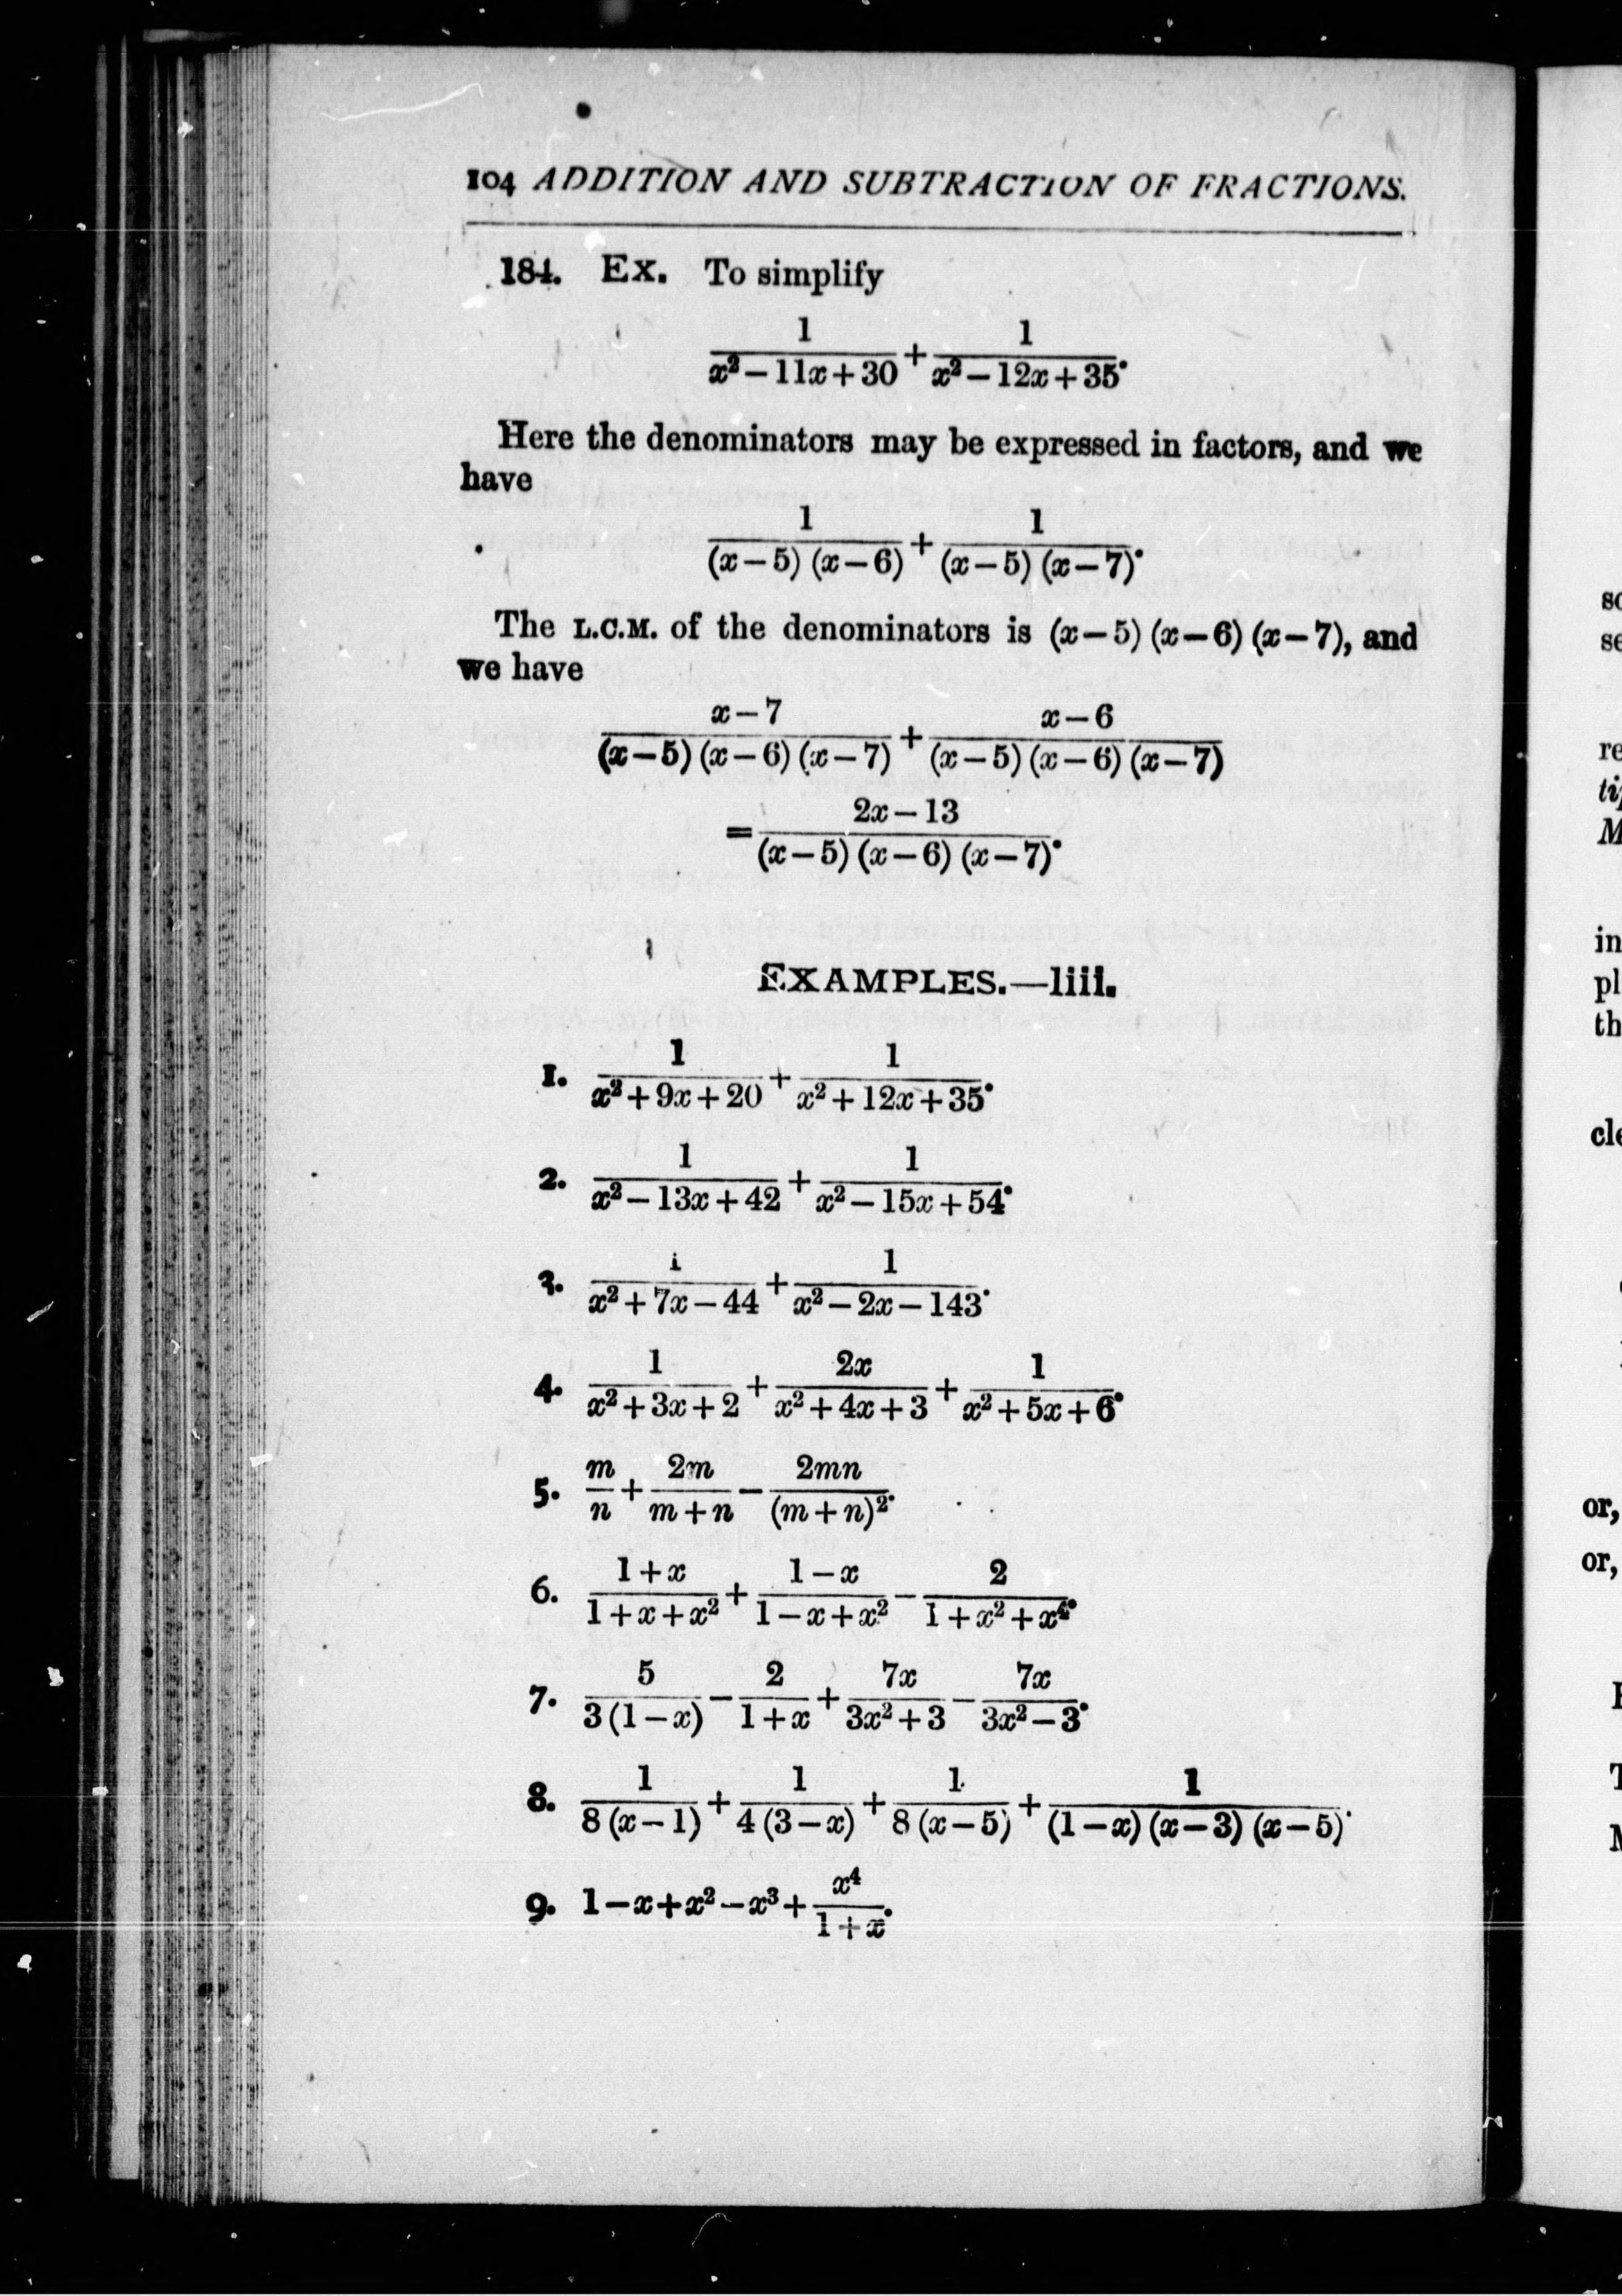 104 ADDITION AND SUBTRACTION OF FRACTIONS.
184. Ex. To simplify
1/(x² − 11x + 30) + 1/(x² − 12x + 35).
Here the denominators may be expressed in factors, and we
have
1/((x − 5) (x − 6)) + 1/((x − 5) (x − 7)).
The L.C.M. of the denominators is (x − 5) (x − 6) (x − 7), and
we have
(x − 7)/((x − 5) (x − 6) (x − 7)) + (x − 6)/((x − 5) (x − 6) (x − 7))
= (2x − 13)/((x − 5) (x − 6) (x − 7)).
EXAMPLES.—liii.
1. 1/(x² + 9x + 20) + 1/(x² + 12x + 35).
2. 1/(x² − 13x + 42) + 1/(x² − 15x + 54).
3. 1/(x² + 7x − 44) + 1/(x² − 2x − 143).
4. 1/(x² + 3x + 2) + 2x/(x² + 4x + 3) + 1/(x² + 5x + 6).
5. m/n + 2m/(m + n) − 2mn/(m + n)².
6. (1 + x)/(1 + x + x²) + (1 − x)/(1 − x + x²) − 2/(1 + x² + x⁴).
7. 5/(3 (1 − x)) − 2/(1 + x) + 7x/(3x² + 3) − 7x/(3x² − 3).
8. 1/(8 (x − 1)) + 1/(4 (3 − x)) + 1/(8 (x − 5)) + 1/((1 − x) (x − 3) (x − 5)).
9. 1 − x + x² − x³ + x⁴/(1 + x).
in
or,
or,